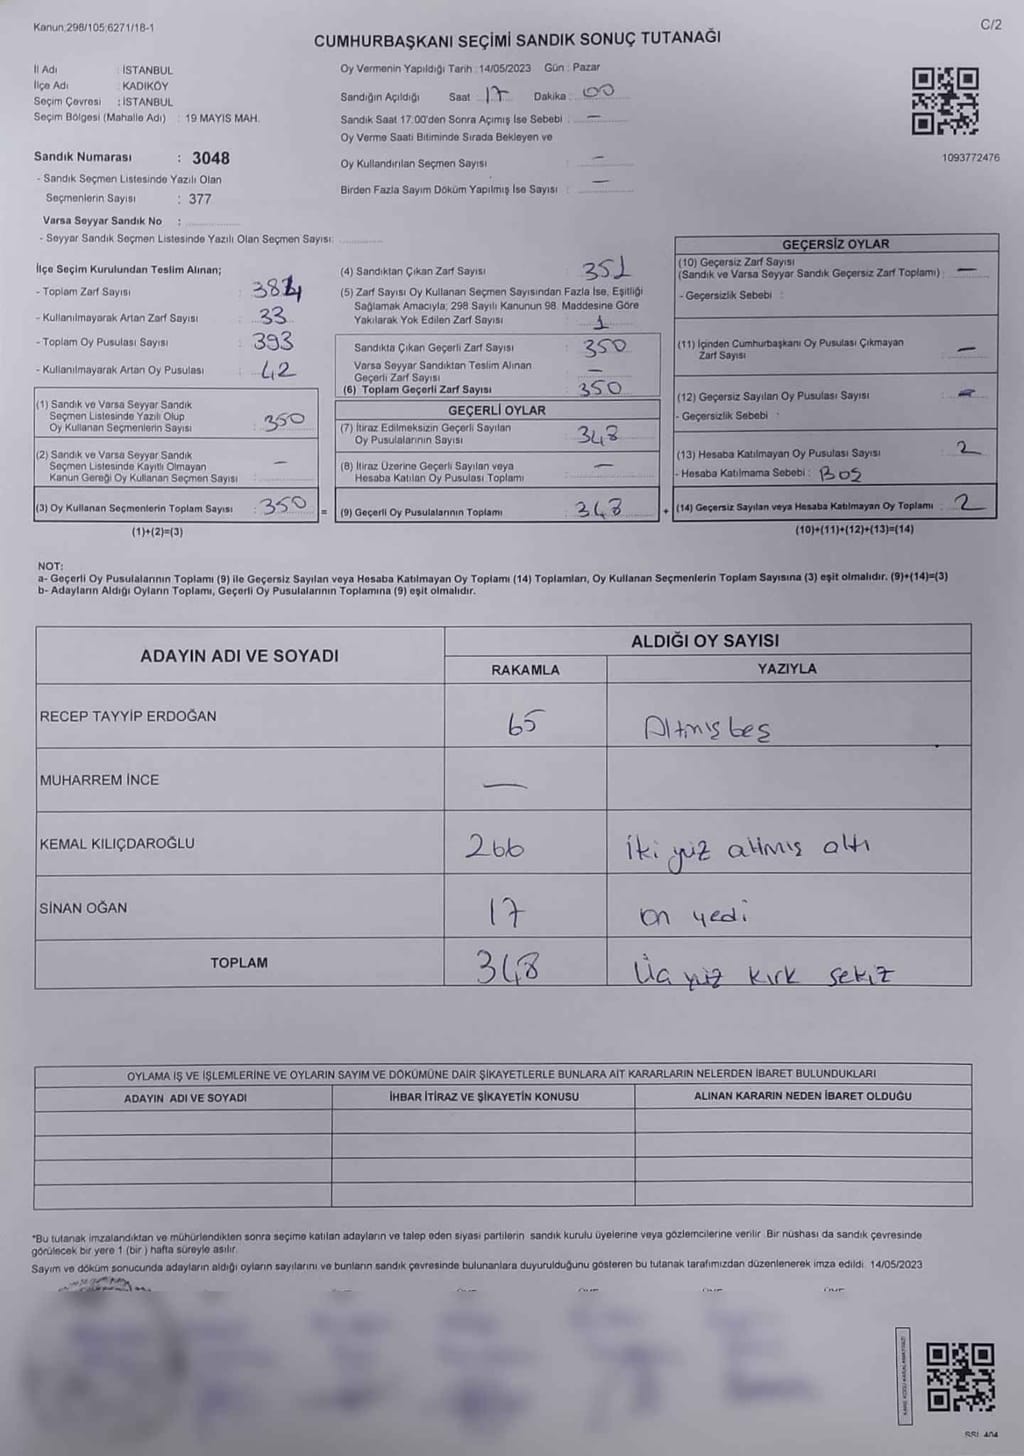 Kanun:298/105;6271/18-1
C/2
CUMHURBAŞKANI SEÇİMİ SANDIK SONUÇ TUTANAĞI
İl Adı : İSTANBUL
İlçe Adı : KADIKÖY
Seçim Çevresi : İSTANBUL
Seçim Bölgesi (Mahalle Adı) : 19 MAYIS MAH.
Sandık Numarası : 3048
- Sandık Seçmen Listesinde Yazılı Olan
Seçmenlerin Sayısı : 377
Varsa Seyyar Sandık No :
- Seyyar Sandık Seçmen Listesinde Yazılı Olan Seçmen Sayısı:
Oy Vermenin Yapıldığı Tarih : 14/05/2023 Gün : Pazar
Sandığın Açıldığı Saat 17 Dakika : 00
Sandık Saat 17:00'den Sonra Açımış İse Sebebi : —
Oy Verme Saati Bitiminde Sırada Bekleyen ve
Oy Kullandırılan Seçmen Sayısı : —
Birden Fazla Sayım Döküm Yapılmış İse Sayısı : —
1093772476
İlçe Seçim Kurulundan Teslim Alınan;
- Toplam Zarf Sayısı :
- Kullanılmayarak Artan Zarf Sayısı : 33
- Toplam Oy Pusulası Sayısı : 393
- Kullanılmayarak Artan Oy Pusulası : 42
(1) Sandık ve Varsa Seyyar Sandık
Seçmen Listesinde Yazılı Olup
Oy Kullanan Seçmenlerin Sayısı : 350
(2) Sandık ve Varsa Seyyar Sandık
Seçmen Listesinde Kayıtlı Olmayan
Kanun Gereği Oy Kullanan Seçmen Sayısı : —
(3) Oy Kullanan Seçmenlerin Toplam Sayısı : 350
(1)+(2)=(3)
(4) Sandıktan Çıkan Zarf Sayısı : 351
(5) Zarf Sayısı Oy Kullanan Seçmen Sayısından Fazla İse, Eşitliği
Sağlamak Amacıyla; 298 Sayılı Kanunun 98. Maddesine Göre
Yakılarak Yok Edilen Zarf Sayısı : 1
Sandıkta Çıkan Geçerli Zarf Sayısı : 350
Varsa Seyyar Sandıktan Teslim Alınan
Geçerli Zarf Sayısı : —
(6) Toplam Geçerli Zarf Sayısı : 350
GEÇERLİ OYLAR
(7) İtiraz Edilmeksizin Geçerli Sayılan
Oy Pusulalarının Sayısı : 348
(8) İtiraz Üzerine Geçerli Sayılan veya
Hesaba Katılan Oy Pusulası Toplamı : —
= (9) Geçerli Oy Pusulalarının Toplamı : 348
GEÇERSİZ OYLAR
(10) Geçersiz Zarf Sayısı
(Sandık ve Varsa Seyyar Sandık Geçersiz Zarf Toplamı) : —
- Geçersizlik Sebebi :
(11) İçinden Cumhurbaşkanı Oy Pusulası Çıkmayan
Zarf Sayısı : —
(12) Geçersiz Sayılan Oy Pusulası Sayısı :
- Geçersizlik Sebebi :
(13) Hesaba Katılmayan Oy Pusulası Sayısı : 2
- Hesaba Katılmama Sebebi : BOŞ
+ (14) Geçersiz Sayılan veya Hesaba Katılmayan Oy Toplamı : 2
(10)+(11)+(12)+(13)=(14)
NOT:
a- Geçerli Oy Pusulalarının Toplamı (9) ile Geçersiz Sayılan veya Hesaba Katılmayan Oy Toplamı (14) Toplamları, Oy Kullanan Seçmenlerin Toplam Sayısına (3) eşit olmalıdır. (9)+(14)=(3)
b- Adayların Aldığı Oyların Toplamı, Geçerli Oy Pusulalarının Toplamına (9) eşit olmalıdır.
ADAYIN ADI VE SOYADI
ALDIĞI OY SAYISI
RAKAMLA YAZIYLA
RECEP TAYYİP ERDOĞAN 65 Altmış beş
MUHARREM İNCE —
KEMAL KILIÇDAROĞLU 266 İki yüz altmış altı
SİNAN OĞAN 17 on yedi
TOPLAM 348 Üç yüz kırk sekiz
OYLAMA İŞ VE İŞLEMLERİNE VE OYLARIN SAYIM VE DÖKÜMÜNE DAİR ŞİKAYETLERLE BUNLARA AİT KARARLARIN NELERDEN İBARET BULUNDUKLARI
ADAYIN ADI VE SOYADI İHBAR İTİRAZ VE ŞİKAYETİN KONUSU ALINAN KARARIN NEDEN İBARET OLDUĞU
*Bu tutanak imzalandıktan ve mühürlendikten sonra seçime katılan adayların ve talep eden siyasi partilerin sandık kurulu üyelerine veya gözlemcilerine verilir. Bir nüshası da sandık çevresinde
görülecek bir yere 1 (bir ) hafta süreyle asılır.
Sayım ve döküm sonucunda adayların aldığı oyların sayılarını ve bunların sandık çevresinde bulunanlara duyurulduğunu gösteren bu tutanak tarafımızdan düzenlenerek imza edildi. 14/05/2023